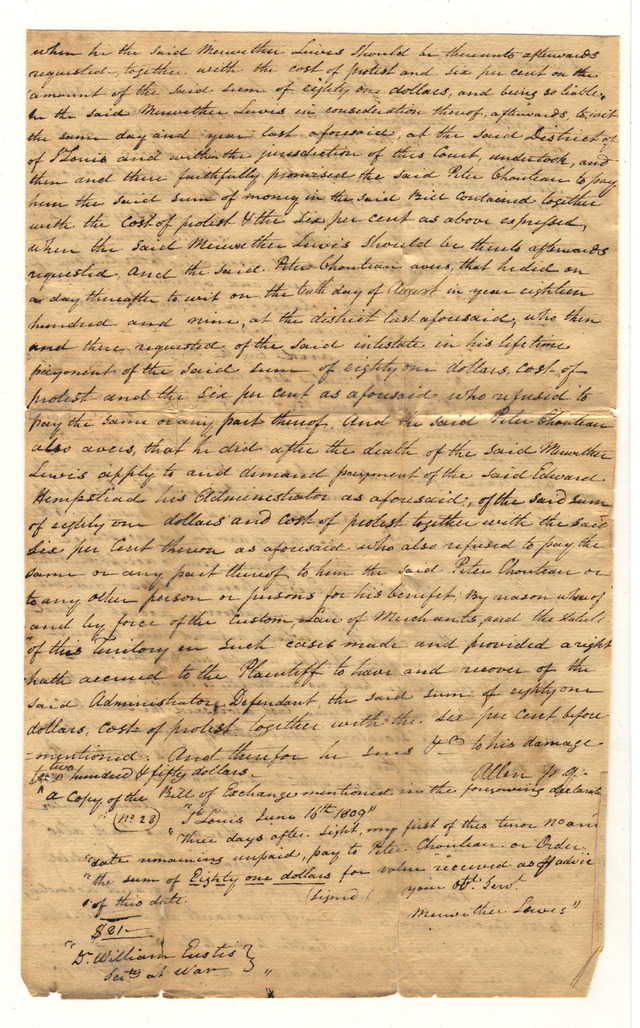 when he the said Meriwether Lewis should be thereunto afterwards
requested, together with the cost of protest and six per cent on the
amount of the said sum of eighty one dollars, and being so liable,
he the said Meriwether Lewis in consideration thereof, afterwards, to wit
the same day and year last aforesaid, at the said District of
of St Louis and within the jurisdiction of this Court, undertook, and
then and there faithfully promised the said Peter Chouteau to pay
him the said sum of money in the said Bill contained together
with the Cost of protest & the six per cent as above expressed,
when the said Meriwether Lewis should be thereto afterwards
requested. And the said Peter Chouteau avers, that he did on
a day thereafter to wit on the tenth day of August in year eighteen
hundred and nine, at the district last aforesaid, who then
and there requested of the said intestate in his lifetime
payment of the said sum of eighty one dollars, cost of
protest and the six per cent as aforesaid who refused to
pay the same or any part thereof. And the said Peter Chouteau
also avers, that he did after the death of the said Meriwether
Lewis apply to and demand payment of the said Edward
Hempstead his Administrator as aforesaid, of the said sum
of eighty one dollars and cost of protest together with the said
six per cent thereon as aforesaid who also refused to pay the
same or any part thereof to him the said Peter Chouteau or
to any other person or persons for his benefit, By reason whereof
and by force of the Custom, Law of Merchants, and the statute
of this Territory in such cases made and provided a right
hath accrued to the Plaintiff to have and recover of the
said Administrator, Defendant, the said sum of eighty one
dollars, cost of protest together with the six per cent before
mentioned. And therefor he sues &c to his damage
two hundred & fifty dollars. Allen p. q.
"a Copy of the Bill of Exchange mentioned in the foregoing declarate
(No 28) "St Louis June 16th 1809"
"Three days after sight, my first of this tenor
"date remaining unpaid, pay to Peter Chouteau or Order
"the sum of Eighty one dollars for value received as pr advice
" of this date. (signed) your Obt. Servt.
Meriwether Lewis"
$81–
"Dr. William Eustis }
Secty at War } "